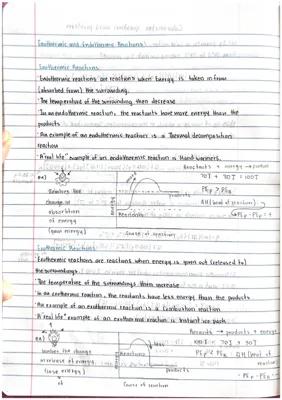 Exothermic and Endothermic Reactions:
Endothermic Reactions
· Endothermic reactions are reactions when Energy is taken in from
(absorbed from) the surrounding.
· The temperature of the surrounding then decrease
· In an endothermic reaction, the reactants have more energy than the
products
· An example of an endothermic reaction is a Thermal decomposition
reaction
· A "real life" example of an endothermic reaction is Hand warmers.
Reactants + energy → product
70J + 30J = 100J
products
PEp > PER
ΔH (heat of reaction)
change in
absorbtion
of energy
(gain energy)
Reactants
Course of reaction
Exothermic Reactions
· Exothermic reactions are reactions when energy is given out (released to)
the surroundings.
· The temperature of the surroundings then increase
· In an exothermic reaction, the reactants have less energy than the products
· An example of an exothermic reaction is a Combustion reaction
· A "real life" example of an exothermic reaction is Instant ice pack
Reactants → products + energy
the change
in release of energy
(lose energy)
Reactions
products
ΔH (heat of
reaction)
Course of reaction